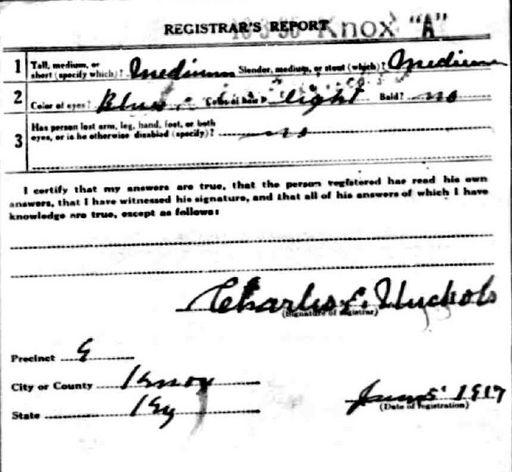 REGISTRAR'S REPORT Knox "A"
1 Tall, medium, or short (specify which)? Medium Slender, medium, or stout (which)? Medium
2 Color of eyes? Blue Color of hair? light Bald? no
3 Has person lost arm, leg, hand, foot, or both
eyes, or is he otherwise disabled (specify)? no
I certify that my answers are true, that the person registered has read his own
answers, that I have witnessed his signature, and that all of his answers of which I have
knowledge are true, except as follows:
Charles
(Signature of registrar)
Precinct
City or County Knox
State Ky
June 5 1917
(Date of registration)